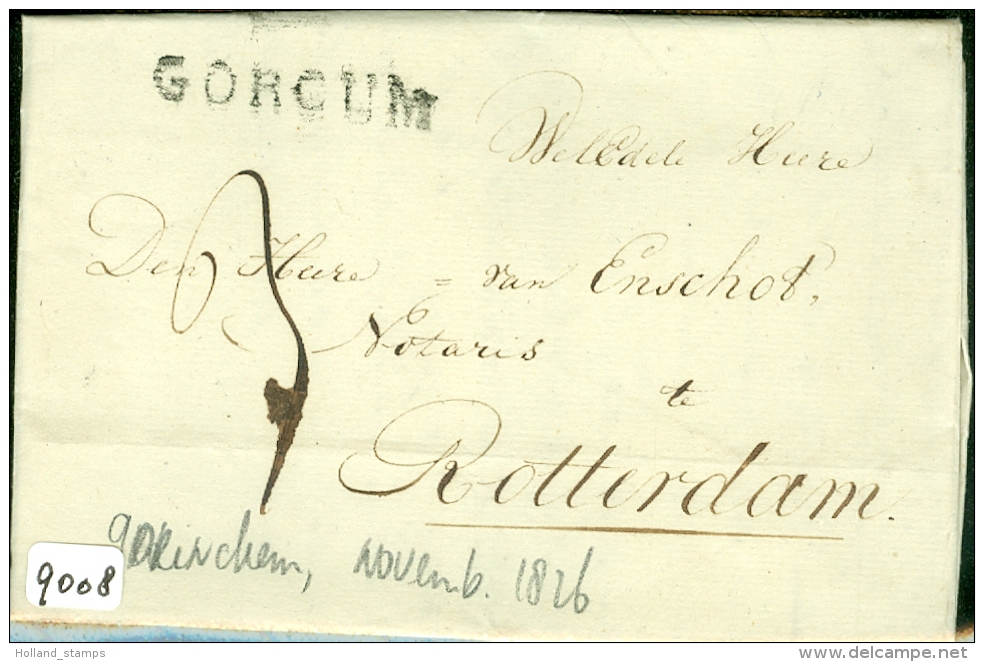 GORCUM
WelEdele Heere
Den Heere = van Enschot,
Notaris
te
Rotterdam.
gorinchem, novemb. 1826
9008
Holland_stamps
www.delcampe.net